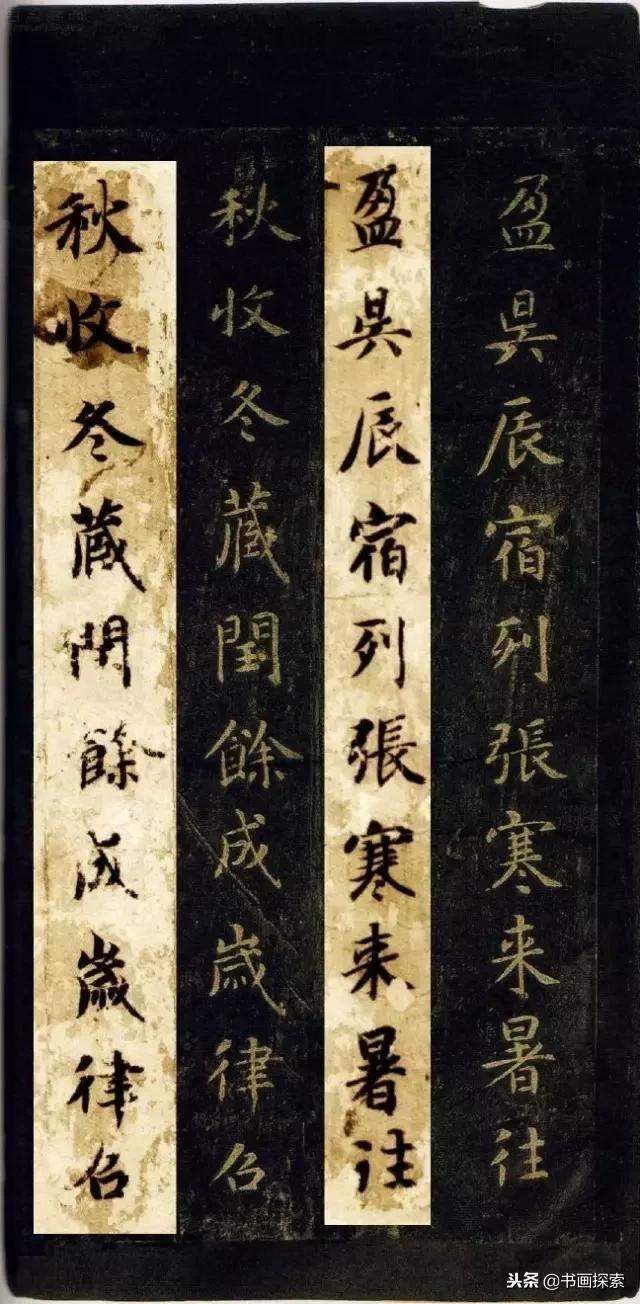 盈昃辰宿列張寒来暑往
盈昃辰宿列張寒来暑往
秋收冬藏閏餘成歲律召
秋收冬藏閏餘成歲律召
头条@书画探索